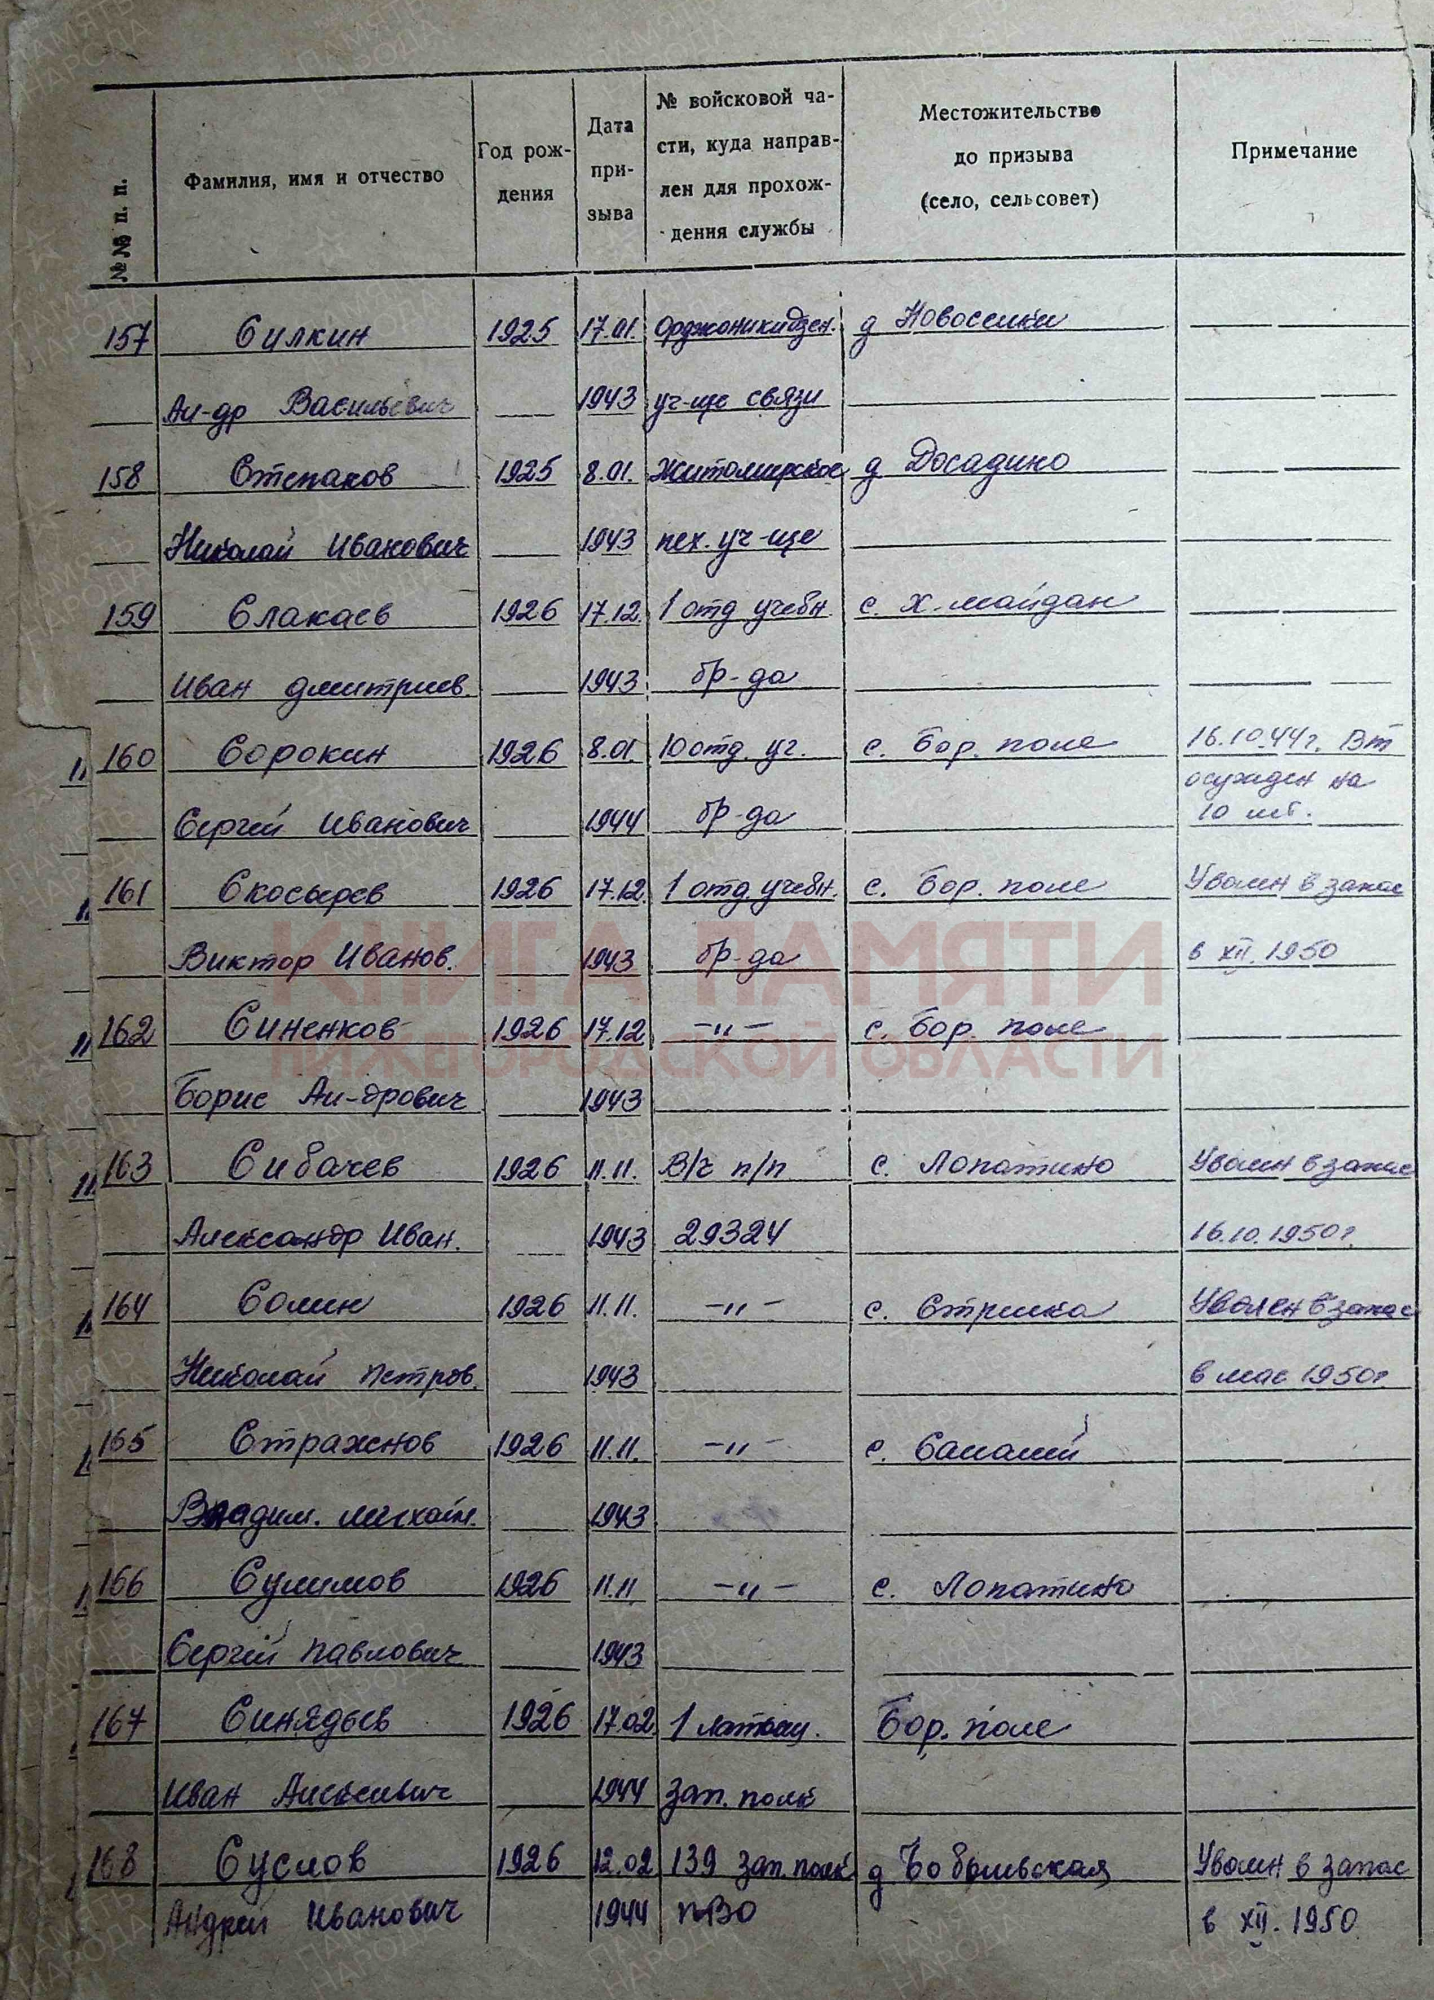 №№ п. п.
Фамилия, имя и отчество
Год рож-
дения
Дата
при-
зыва
№ войсковой ча-
сти, куда направ-
лен для прохож-
дения службы
Местожительство
до призыва
(село, сельсовет)
Примечание
157 Силкин 1925 17.01. Орджоникидзен. д Новоселки
Ал-др Васильевич 1943 уч-ще связи
158 Степанов 1925 8.01. Житомирское д Досадино
Николай Иванович 1943 пех. уч-ще
159 Слакаев 1926 17.12. 1 отд учебн. с. Х-майдан
Иван Дмитриев. 1943 бр-да
160 Сорокин 1926 8.01. 10 отд. уч. с. Бор. поле 16.10.44г. ВТ
осужден на
Сергей Иванович 1944 бр-да 10 лет.
161 Скосырев 1926 17.12. 1 отд. учебн. с. Бор. поле Уволен в запас
Виктор Иванов. 1943 бр-да в XII. 1950
КНИГА ПАМЯТИ
162 Синенков 1926 17.12 -〃- с. Бор. поле
НИЖЕГОРОДСКОЙ ОБЛАСТИ
Борис Ал-дрович 1943
163 Сибачев 1926 11.11. В/ч п/п с. Лопатино Уволен в запас
Александр Иван. 1943 29324 16.10.1950г.
164 Солин 1926 11.11. -〃- с. Стрелка Уволен в запас
Николай Петров. 1943 в мае 1950г.
165 Страхснов 1926 11.11. -〃- с.
Владим. Михайл. 1943
166 Сулимов 1926 11.11 -〃- с. Лопатино
Сергей Павлович 1943
167 Синядьев 1926 17.02. 1 Бор. поле
Иван Алексеевич 1944 зап. полк
168 Суслов 1926 12.02 139 зап. полк д Бобыльская Уволен в запас
Андрей Иванович 1944 ПВО в XII. 1950